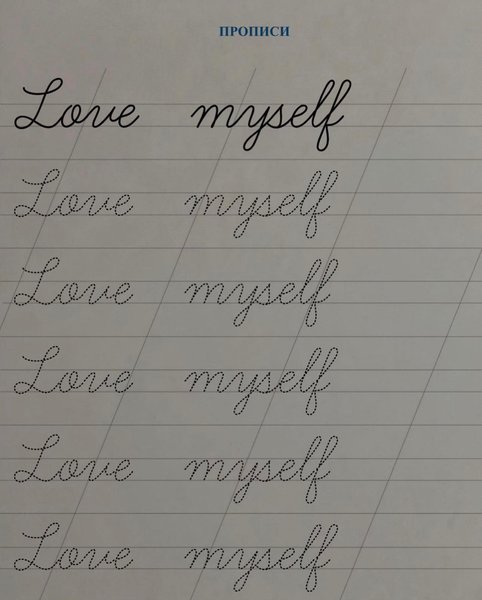 ПРОПИСИ
Love myself
Love myself
Love myself
Love myself
Love myself
Love myself